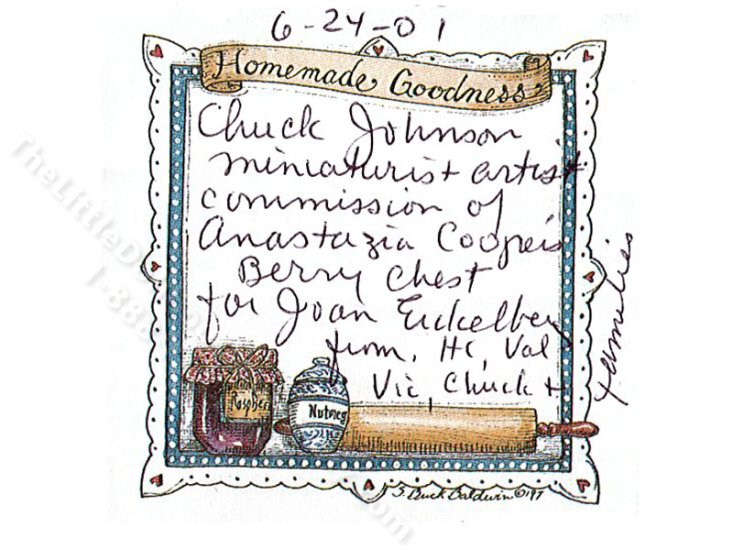 6-24-01
Homemade Goodness
Chuck Johnson
miniaturist artist
commission of
Anastazia Cooper's
Berry Chest
for Joan Eickelberg
from, HC, Val
Vic, Chuck +
families
Raspber
Nutmeg
S. Buck Baldwin ©'97
TheLittleD
1-88
om